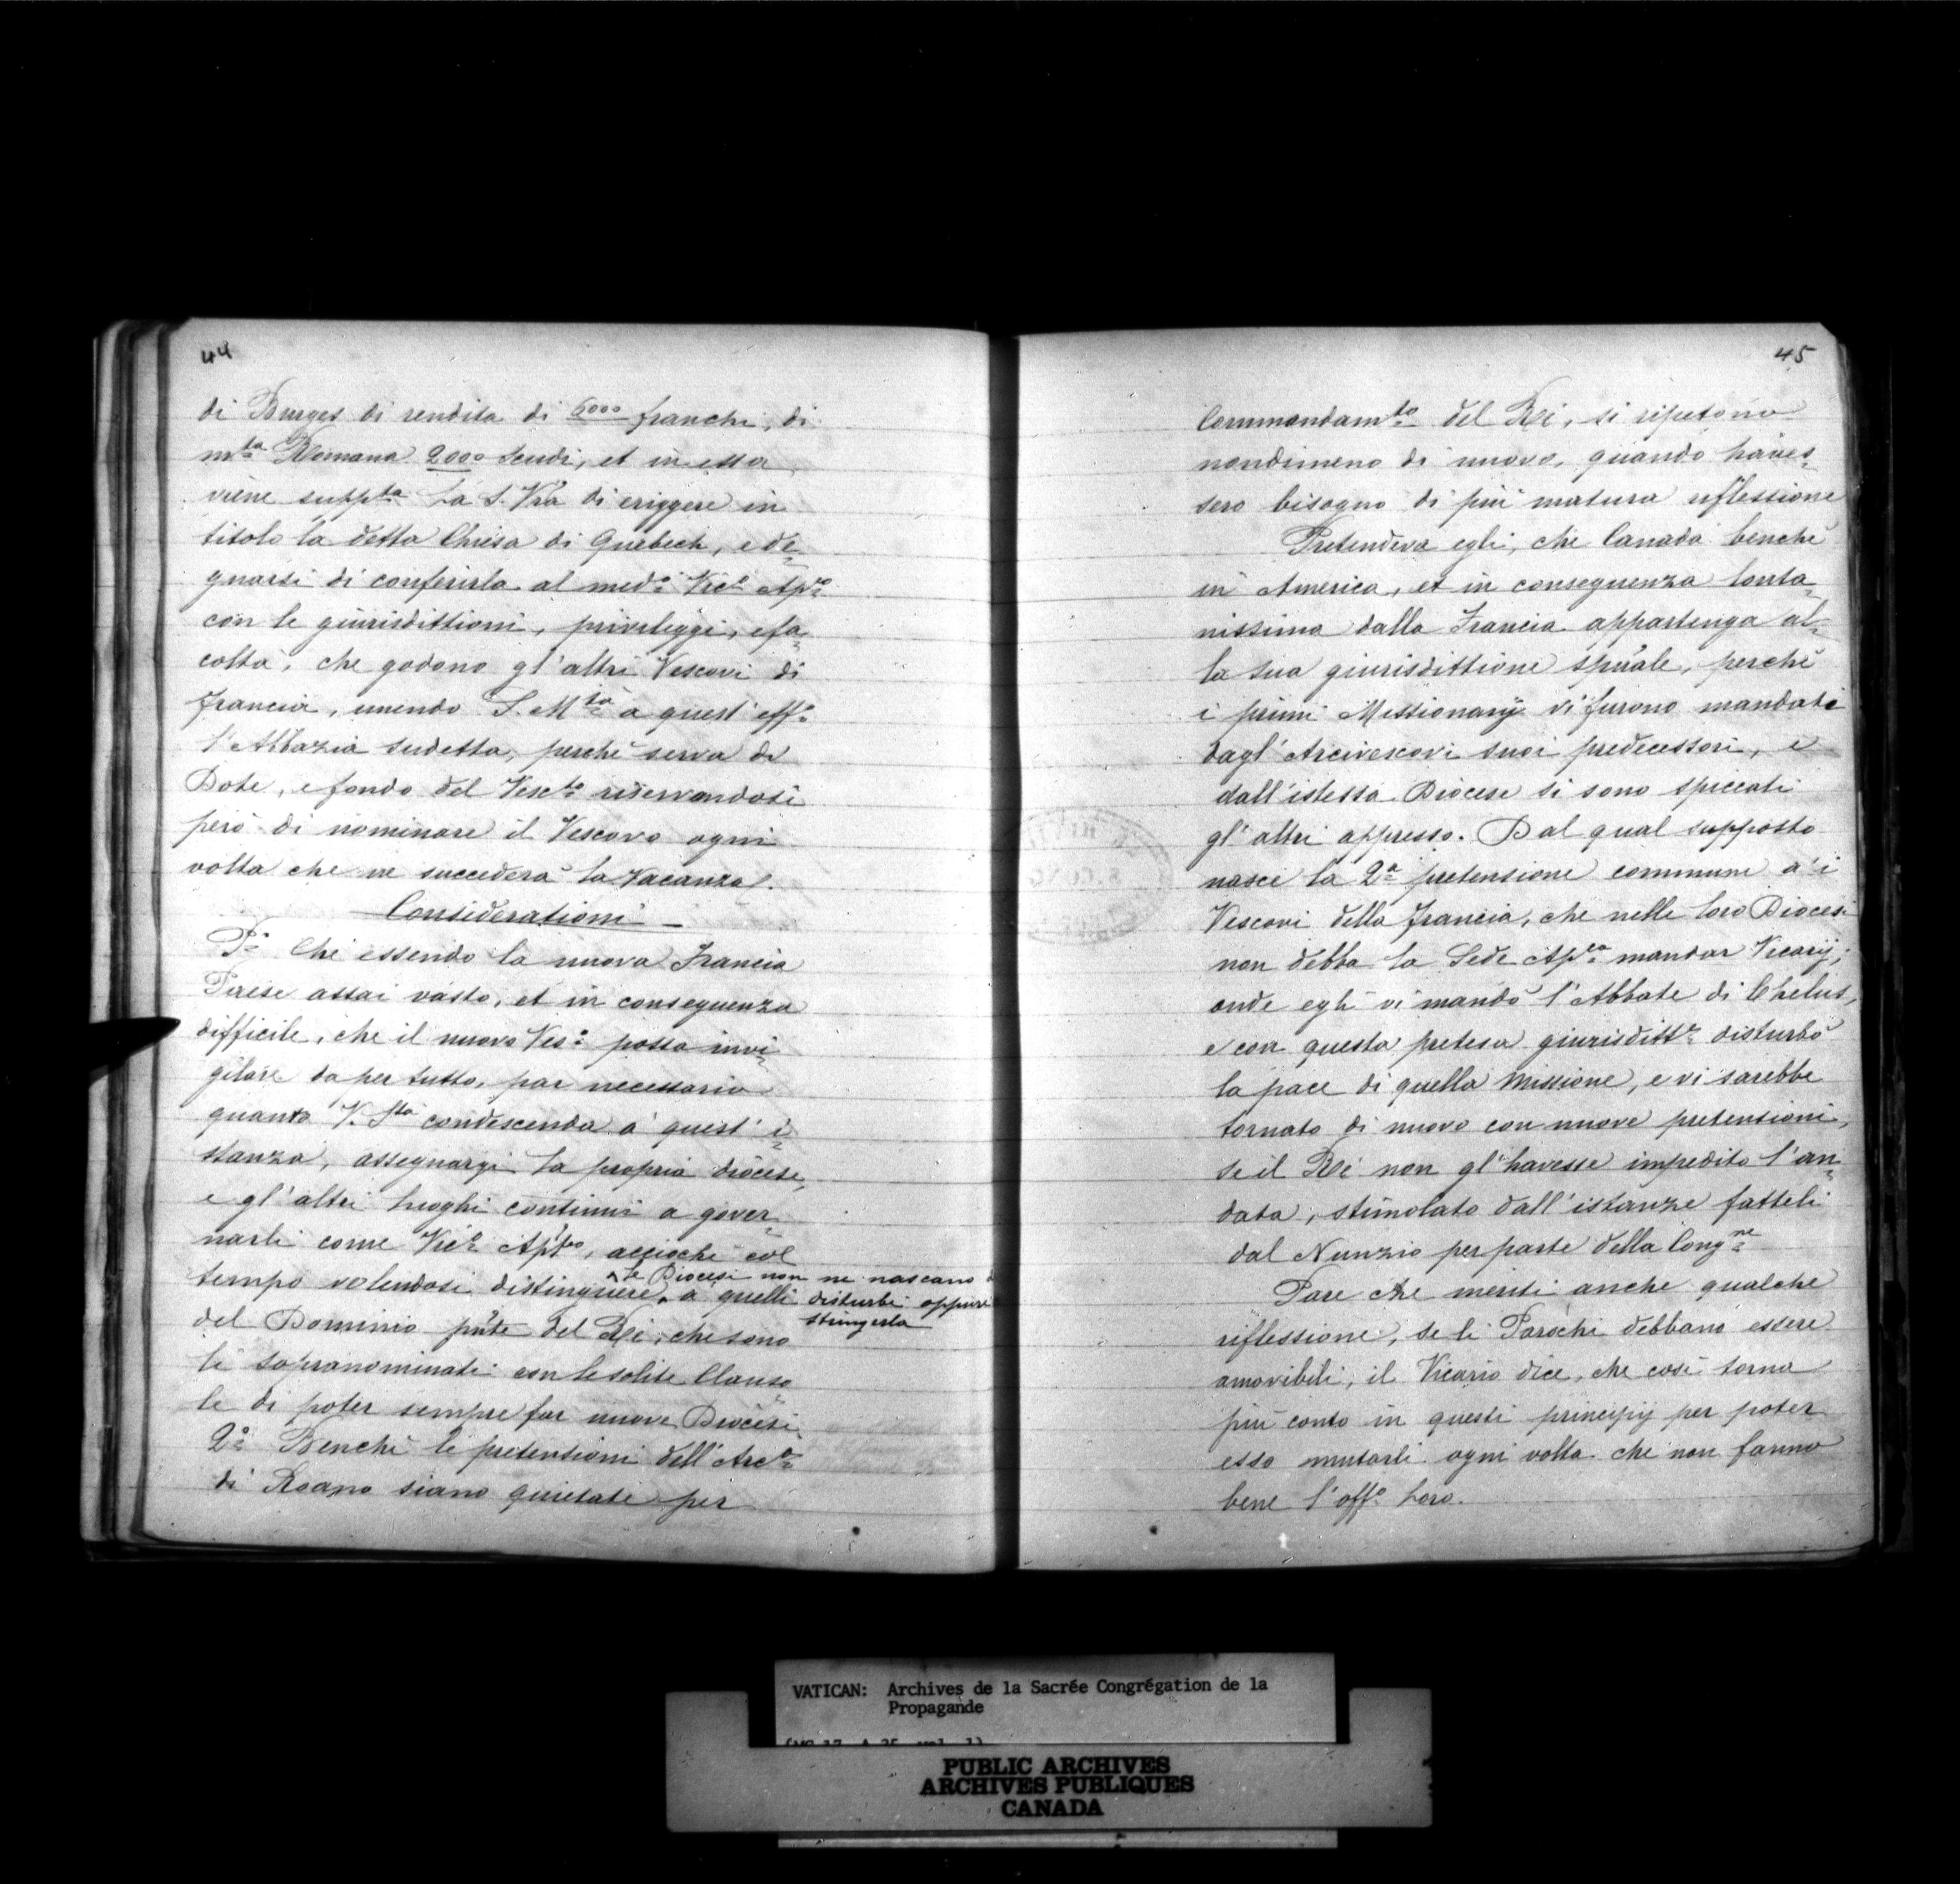 44
di Burges di rendita di 6000 franchi, di
mta Romana 2000 Scudi, et in essa
viene suppta La S. Vra di eriggere in
titolo la detta Chiesa di Quebech, e de=
gnarsi di conferirla al medo Vico Apco
con le giurisdittioni, privileggi, e fa=
coltà, che godono gl'altri Vescovi di
francia, unendo S. Mtà a quest' effo
l'Abbazia sudetta, perchè serva di
Dote, e fondo del Vescto riservandosi
però di nominare il Vescovo ogni
volta che ne succederà la Vacanza.
Considerationi
Pa Che essendo la nuova Francia
Paese assai vasto, et in conseguenza
difficile, che il nuovo Veso possa invi=
gilare da per tutto, par necessario
quanto V. Stà condescenda a quest' i=
stanza, assegnargi la propria diocese,
e gl'altri luoghi continui a gover=
narli come Vico Aptco, accioche col
tempo volendosi distinguere le Diocesi non ne nascano
a quelli disturbi oppure
stringerla
del Dominio pnte del Rè, che sono
li sopranominati con le solite Clauso=
le di poter sempre far nuove Diocesi.
2o Benchè le pretensioni dell' Arco
di Roano siano quietate per
45
Commandamto del Rè, si ripetono
nondimeno di nuovo, quando haves=
sero bisogno di più matura riflessione
Pretendeva egli, che Canada benchè
in America, et in conseguenza lonta=
nissima dalla Francia appartenga al=
la sua giurisdittione spûale, perchè
i primi Missionarij vi furono mandati
dagl' Arcivescovi suoi predecessori, e
dall'istessa Diocese si sono spiccati
gl' altri appresso. Dal qual supposto
nasce la 2a pretensione commune a' i
Vescovi della francia, che nelle loro Diocesi
non debba la Sede Apca mandar Vicarij;
onde egli vi mandò l'Abbate di Chelus,
e con questa pretesa giurisdittne disturbò
la pace di quella Missione, e vi sarebbe
tornato di nuovo con nuove pretensioni,
se il Rè non gl'havesse impedito l'an=
data, stimolato dall'istanze fatteli
dal Nunzio per parte della Congne
Pare che meriti anche qualche
riflessione, se li Parochi debbano essere
amovibili, il Vicario dice, che così torna
più conto in questi principij per poter
esso mutarli ogni volta che non fanno
bene l'offo loro.
VATICAN: Archives de la Sacrée Congrégation de la
Propagande
PUBLIC ARCHIVES
ARCHIVES PUBLIQUES
CANADA